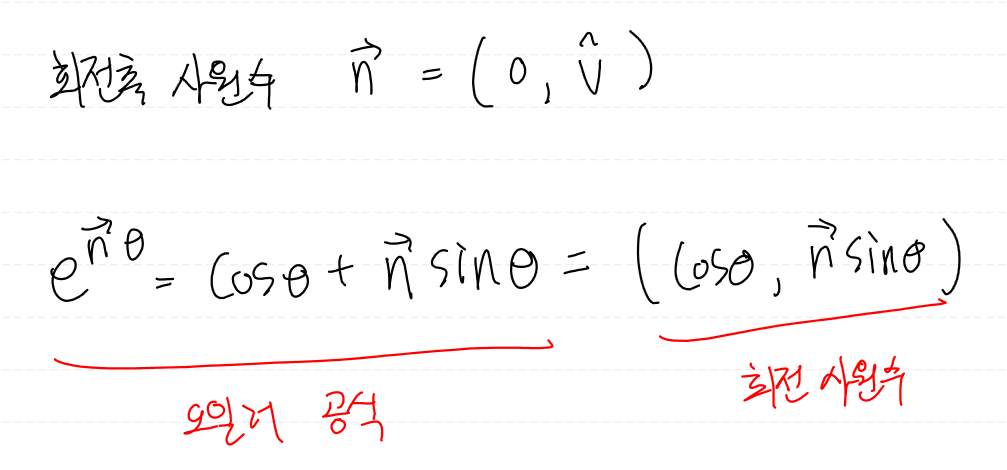 회전축 사원수 n⃗ = (0, v̂)
e^{n⃗θ} = cosθ + n⃗ sinθ = (cosθ, n⃗ sinθ)
오일러 공식 회전 사원수